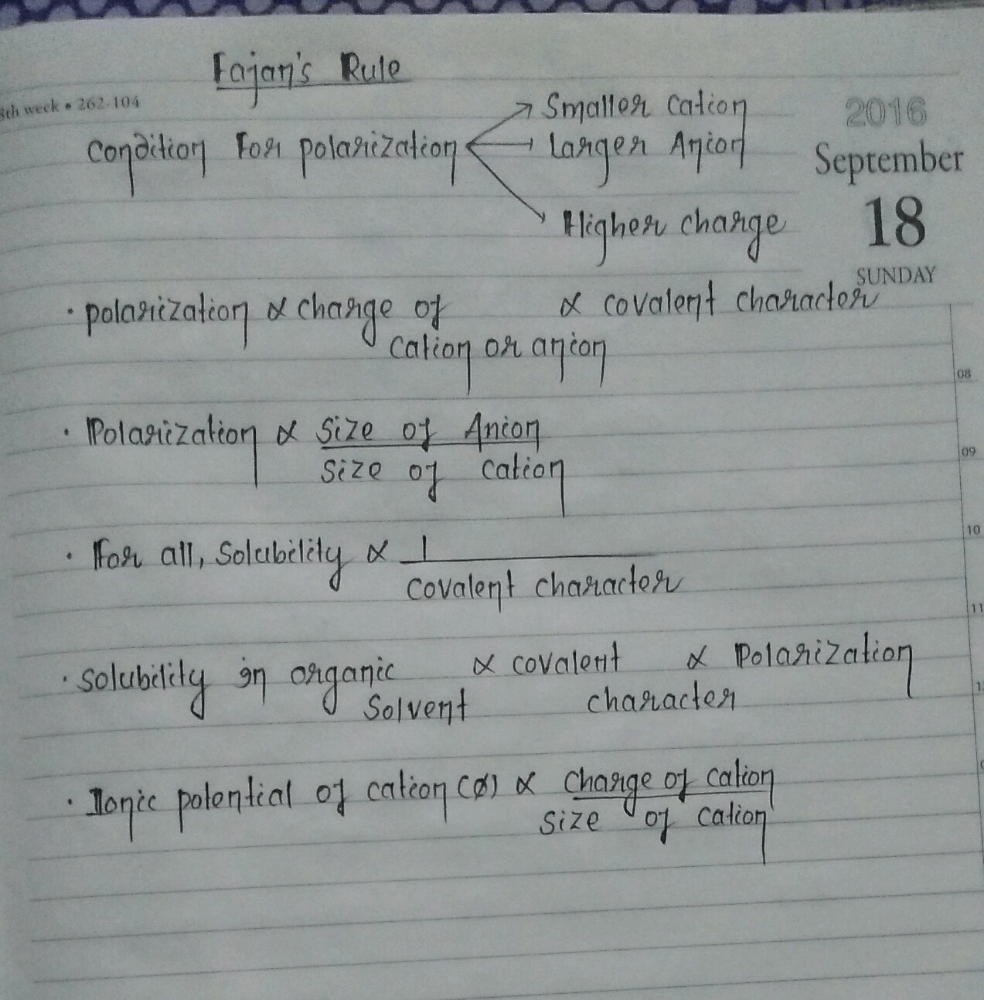 Fajan's Rule
8th week • 262-104
2016
September
18
SUNDAY
Condition For polarization → Smaller Cation
→ Larger Anion
→ Higher charge
• polarization ∝ charge of cation or anion ∝ covalent character
• Polarization ∝ Size of Anion / Size of cation
• For all, Solubility ∝ 1 / covalent character
• Solubility in organic Solvent ∝ covalent character ∝ Polarization
• Ionic potential of cation (ø) ∝ charge of cation / size of cation
08
09
10
11